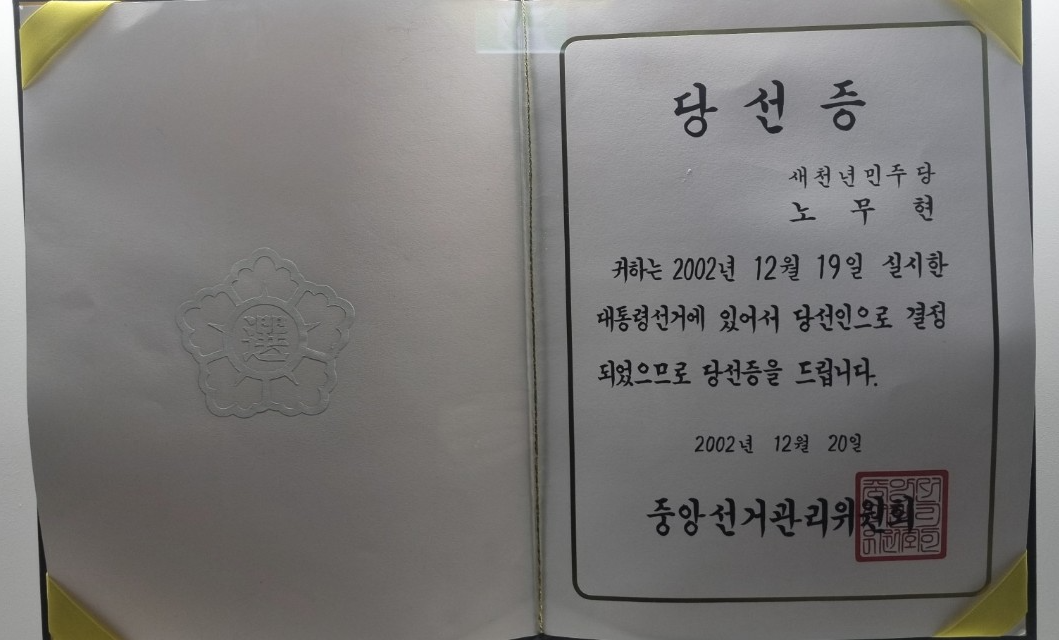 選
당선증
새천년민주당
노무현
귀하는 2002년 12월 19일 실시한
대통령선거에 있어서 당선인으로 결정
되었으므로 당선증을 드립니다.
2002년 12월 20일
중앙선거관리위원회